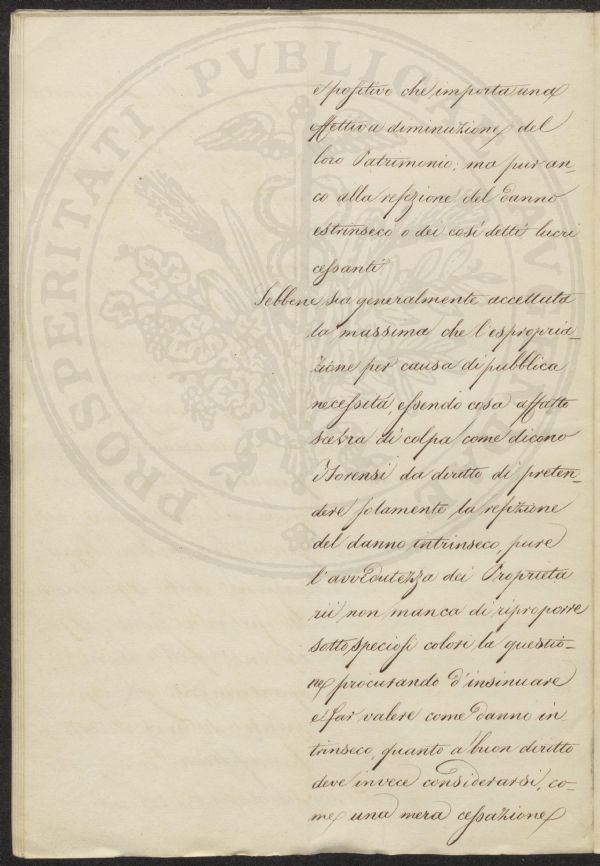 PROSPERITATI PVBLICAE AVGENDAE
e positivo che importa una
effettiva diminuzione del
loro Patrimonio; ma pur an-
co alla refezione del danno
estrinseco o dei così detti lucri
cessanti
Sebbene sia generalmente accettata
la massima che l'espropria-
zione per causa di pubblica
necessità, essendo cosa affatto
scevra di colpa come dicono
i Forensi da diritto di preten-
dere solamente la refezione
del danno intrinseco, pure
l'avvedutezza dei Proprieta
rii non manca di riproporre
sotto speciosi colori la questio-
ne procurando d'insinuare
e far valere come danno in
trinseco, quanto a buon diritto
deve invece considerarsi, co-
me una mera cessazione